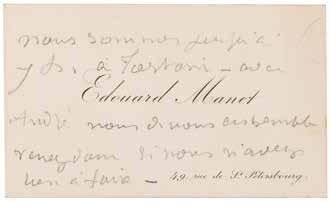 nous sommes jusqu'à
7 h. à Tortoni – avec
Edouard Manet
André nous dinons ensemble
venez donc si nous n'avez
rien à faire –
49, rue de St. Pétersbourg.